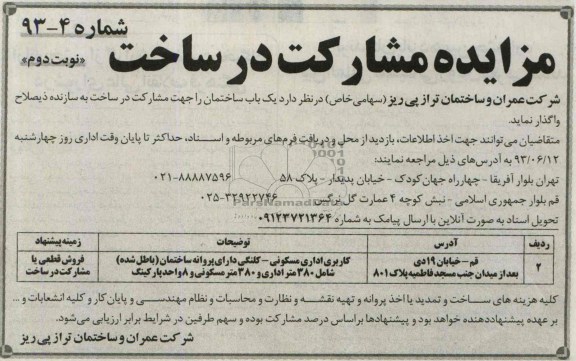 شماره ۴-۹۳
مزایده مشارکت در ساخت
«نوبت دوم»
شرکت عمران و ساختمان تراز پی ریز (سهامی خاص) در نظر دارد یک باب ساختمان را جهت مشارکت در ساخت به سازنده ذیصلاح
واگذار نماید.
متقاضیان می توانند جهت اخذ اطلاعات، بازدید از محل و دریافت فرم‌های مربوطه و اسناد، حداکثر تا پایان وقت اداری روز چهارشنبه
۹۳/۰۶/۱۲ به آدرس‌های ذیل مراجعه نمایند:
تهران بلوار آفریقا - چهارراه جهان کودک - خیابان پدیدار - پلاک ۵۸ ۸۸۸۸۷۵۹۶-۰۲۱
قم بلوار جمهوری اسلامی - نبش کوچه ۴ عمارت گل نرگس ۳۲۹۲۲۷۴۶-۰۲۵
تحویل اسناد به صورت آنلاین با ارسال پیامک به شماره ۰۹۱۲۳۷۲۱۳۶۴
ردیف آدرس توضیحات زمینه پیشنهاد
۲ قم - خیابان ۱۹ دی کاربری اداری مسکونی - کلنگی دارای پروانه ساختمان (باطل شده) فروش قطعی یا
بعد از میدان جنب مسجد فاطمیه پلاک ۸۰۱ شامل ۳۸۰ متر اداری و ۳۸۰ متر مسکونی و ۸ واحد پارکینگ مشارکت در ساخت
کلیه هزینه های ساخت و تمدید یا اخذ پروانه و تهیه نقشه و نظارت و محاسبات و نظام مهندسی و پایان کار و کلیه انشعابات و ...
بر عهده پیشنهاددهنده خواهد بود و پیشنهادها بر اساس درصد مشارکت بوده و سهم طرفین در شرایط برابر ارزیابی می‌شود.
شرکت عمران و ساختمان تراز پی ریز